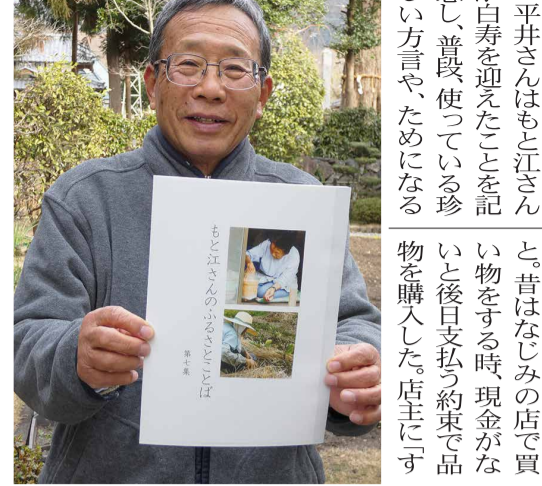 平井さんはもと江さん
白寿を迎えたことを記
し、普段、使っている珍
しい方言や、ためになる
と。昔はなじみの店で買
い物をする時、現金がな
いと後日支払う約束で品
物を購入した。店主に「す
もと江さんのふるさとことば
第七集